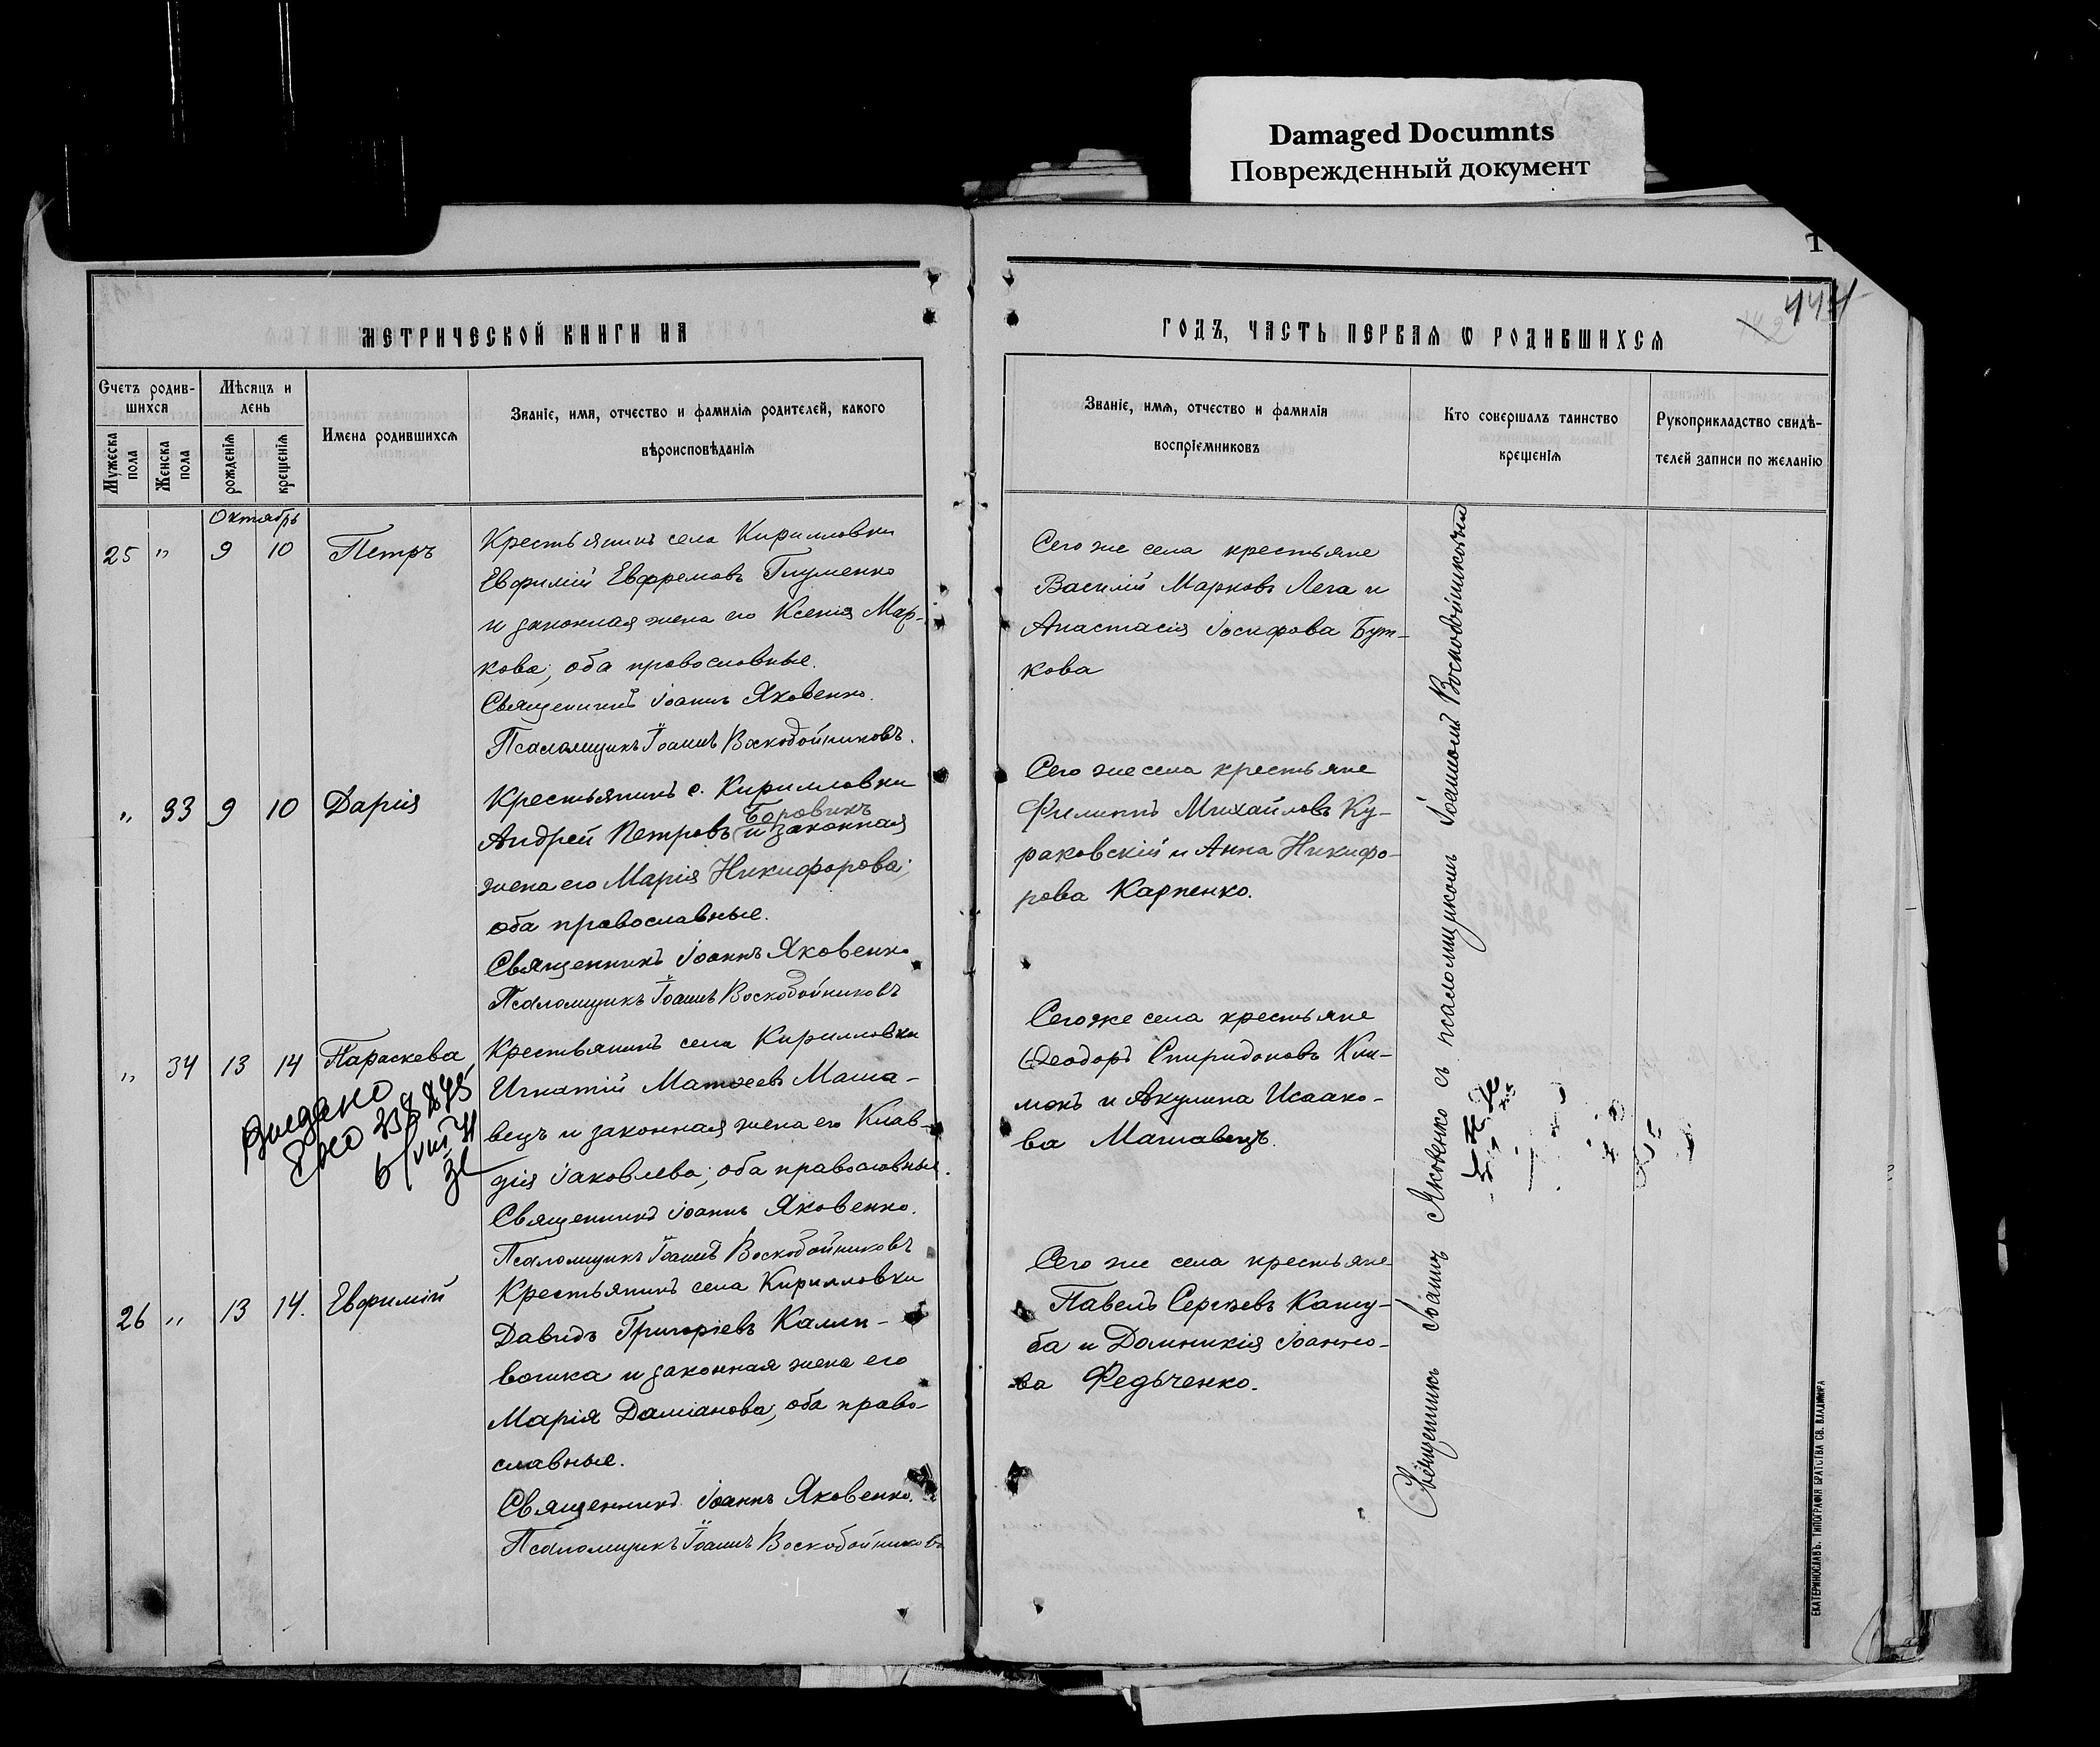 Damaged Documnts
Поврежденный документ
МЕТРИЧЕСКОЙ КНИГИ НА
Счетъ родив-
шихся
Мѣсяцъ и
день
Мужеска
пола
Женска
пола
рожденія
крещенія
Имена родившихся
Званіе, имя, отчество и фамилія родителей, какого
вѣроисповѣданія
Октябрь
25 " 9 10 Петръ
Крестьянинъ села Кирилловки
Евфимій Евфремовъ Глуменко
и законная жена его Ксенія Мар-
кова; оба православные.
Священникъ Іоаннъ Яковенко.
Псаломщикъ Іоаннъ Воскобойниковъ.
" 33 9 10 Дарія
Крестьянинъ с. Кирилловки
Боровикъ
Андрей Петровъ и законная
жена его Марія Никифорова;
оба православные.
Священникъ Іоаннъ Яковенко
Псаломщикъ Іоаннъ Воскобойниковъ
" 34 13 14 Параскева
Выдано
Крестьянинъ села Кирилловки
Игнатій Матѳеевъ Маша-
вецъ и законная жена его Клав-
дія Іаковлева; оба православные.
Священникъ Іоаннъ Яковенко.
Псаломщикъ Іоаннъ Воскобойниковъ
26 " 13 14. Евфимій
Крестьянинъ села Кирилловки
Давидъ Григоріевъ Калли-
вошка и законная жена его
Марія Даміанова; оба право-
славные.
Священникъ Іоаннъ Яковенко.
Псаломщикъ Іоаннъ Воскобойниковъ
444
ГОДЪ, ЧАСТЬ ПЕРВАЯ Ѡ РОДИВШИХСЯ
Званіе, имя, отчество и фамилія
воспріемниковъ
Кто совершалъ таинство
крещенія
Рукоприкладство свидѣ-
телей записи по желанію
Сего же села крестьяне
Василій Марковъ Лега и
Анастасія Іосифова Бут-
кова
Сего же села крестьяне
Филиппъ Михайловъ Ку-
раковскій и Анна Никифо-
рова Карпенко.
Сего же села крестьяне
Ѳеодоръ Спиридоновъ Кли-
мокъ и Акулина Исаако-
ва Машавецъ.
Сего же села крестьяне
Павелъ Сергѣевъ Кашу-
ба и Домникія Іоанно-
ва Федьченко.
Священникъ Іоаннъ Яковенко съ псаломщикомъ Іоанномъ Воскобойниковымъ
ЕКАТЕРИНОСЛАВЪ. ТИПОГРАФІЯ БРАТСТВА СВ. ВЛАДИМІРА